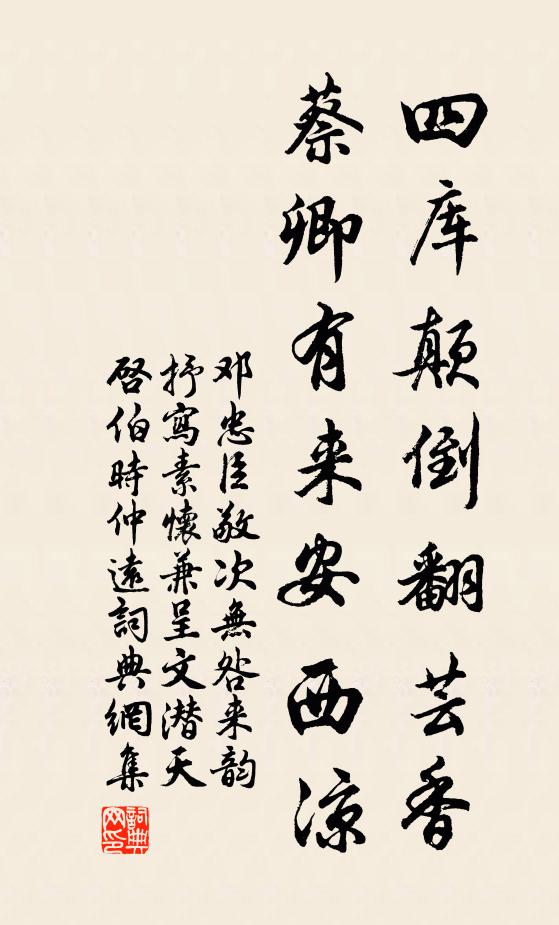 四库颠倒翻芸香
蔡卿有来安西凉
邓忠臣敬次無咎来韵
抒寫素懷兼呈文潜天
啓伯時仲遠詞典網集
詞典网印